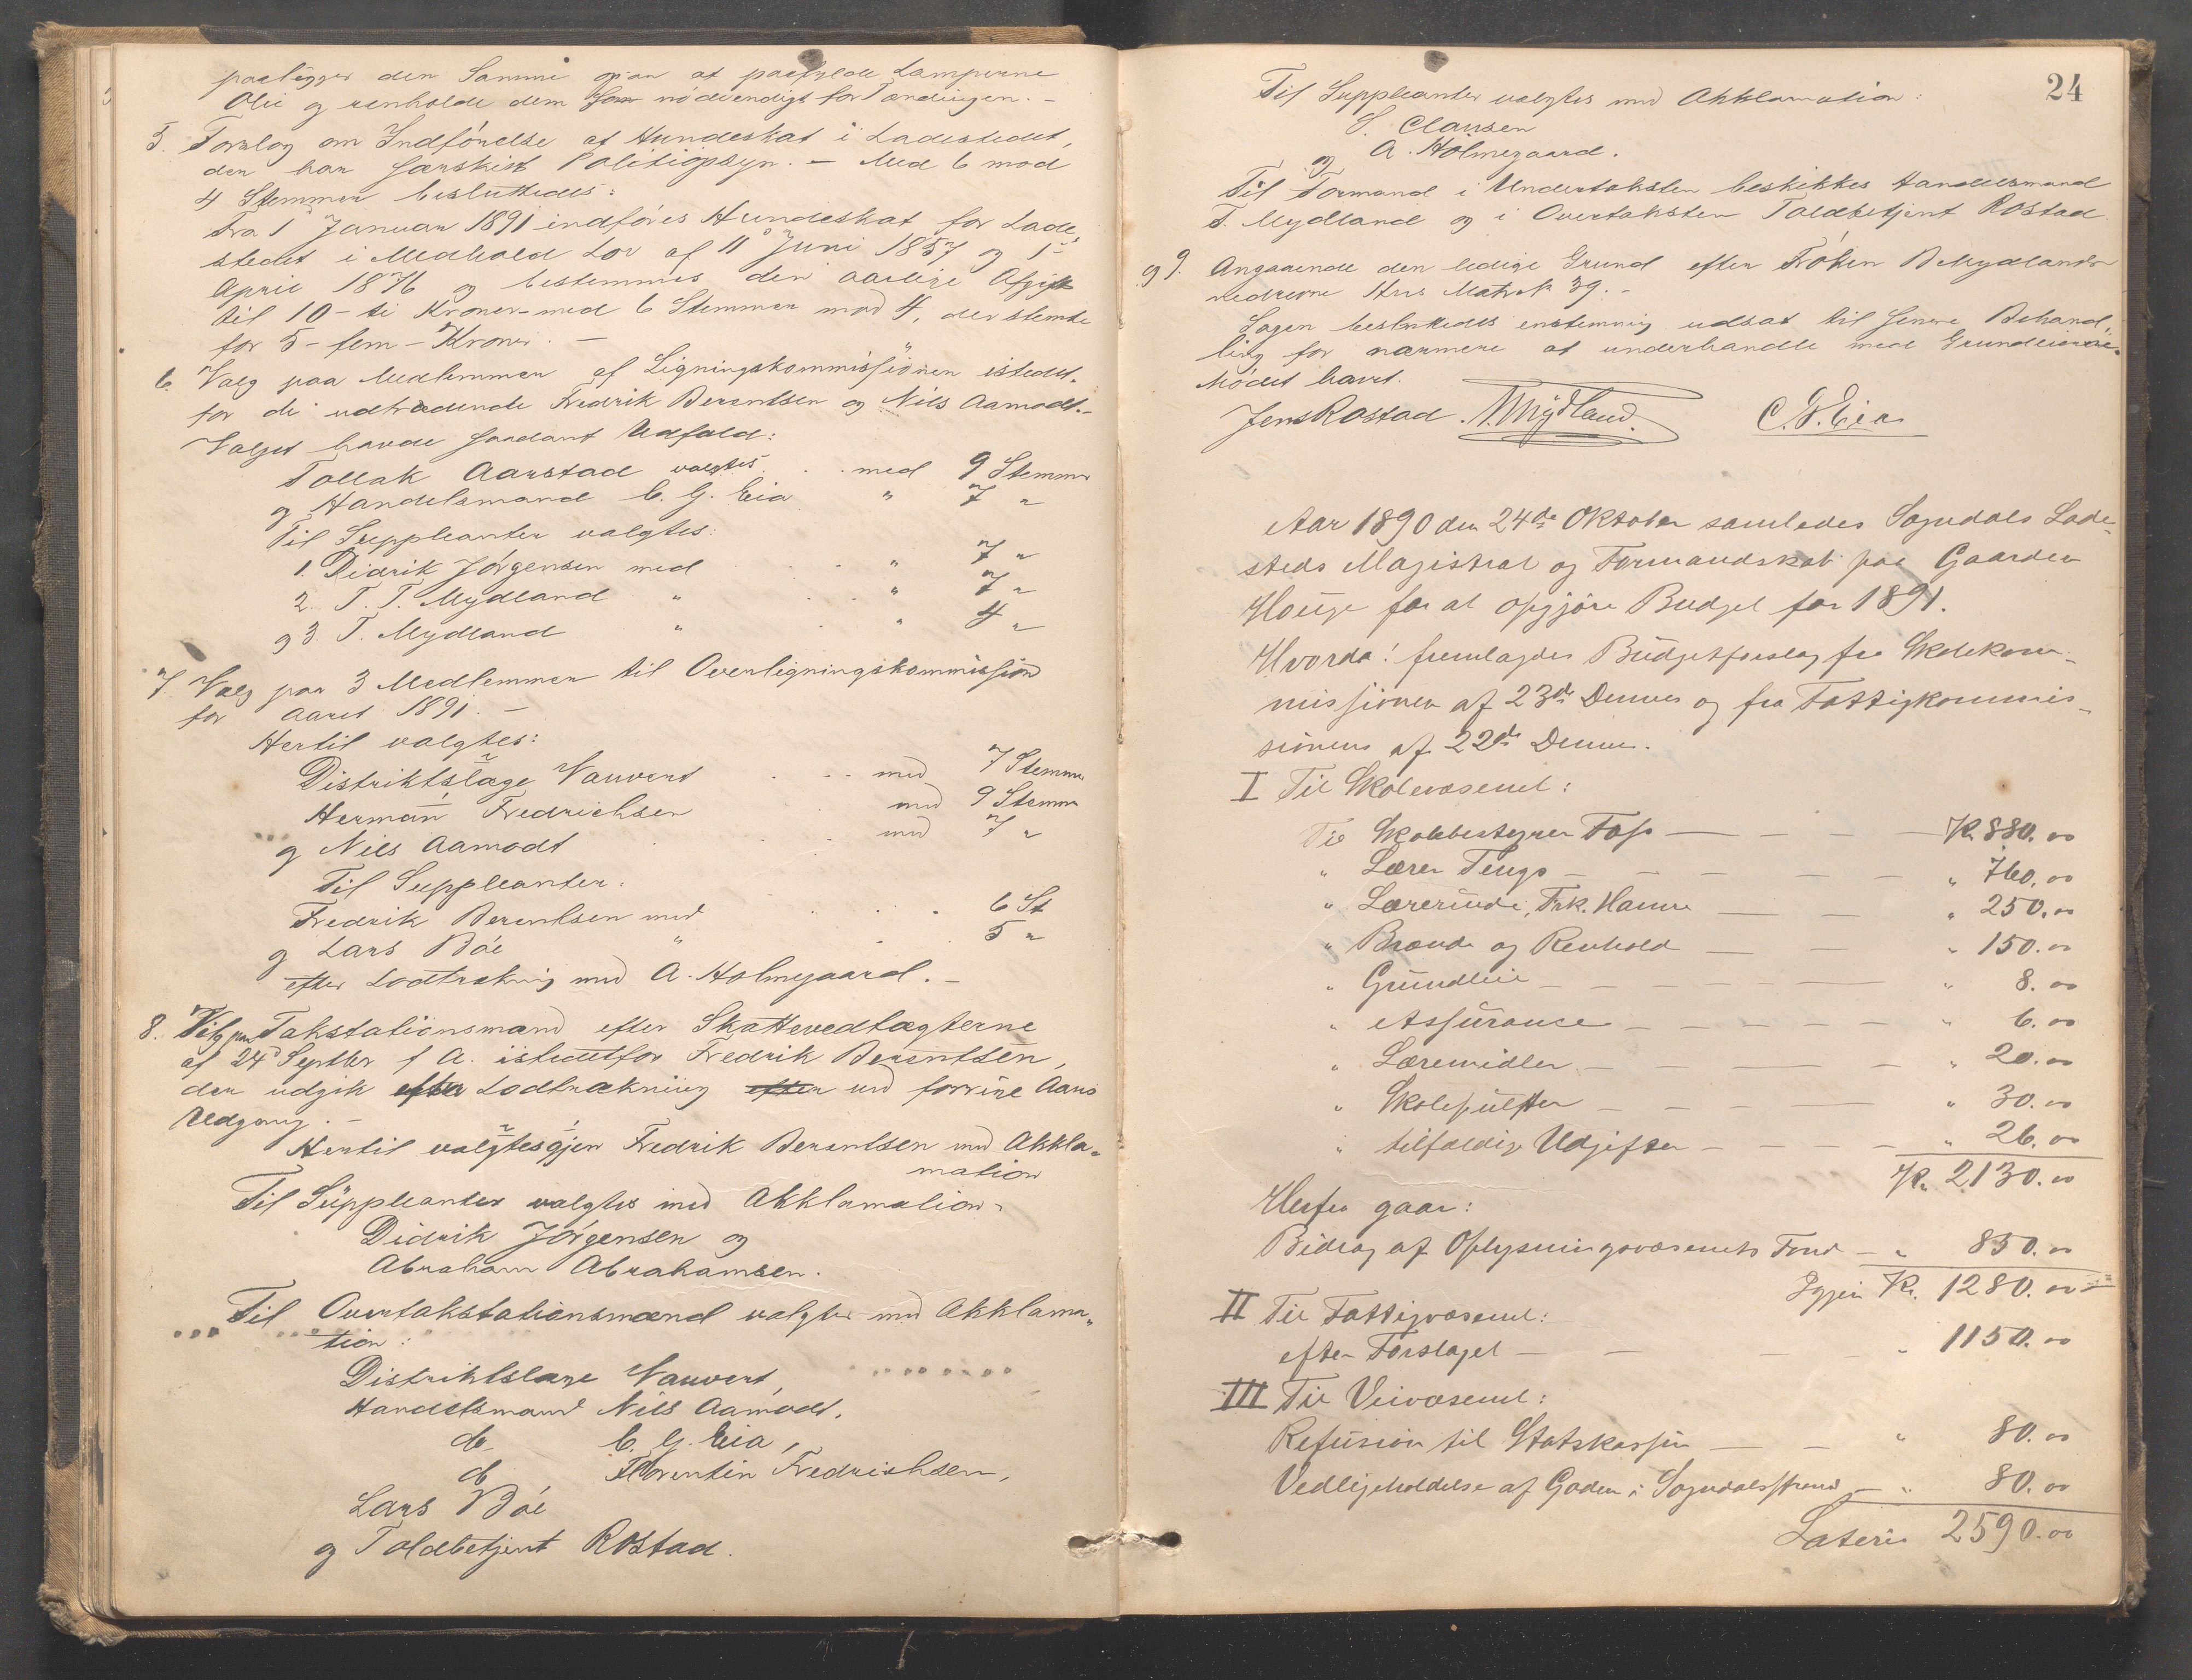 paalægger den Samme ogsaa at paafylde Lamperne
Olie og renholde dem som nödvendigt for Tændingen. -
5. Forslag om Indförelse af Hundeskat i Ladestedet,
der har særskilt Politiopsyn. - Med 6 mod
4 Stemmer besluttedes:
Fra 1 Januar 1891 indföres Hundeskat for Lade-
stedet i Medhold Lov af 11 Juni 1857 og 1ste
April 1876 og bestemmes den aarlige Afgift
til 10 - ti Kroner - med 6 Stemmer mod 4, der stemte
for 5 - fem - Kroner. -
6. Valg paa Medlemmer af Ligningskommissionen istedet-
for de udtrædende Fredrik Berentsen og Nils Aamodt. -
Valget havde saadant Udfald:
Tollak Aarstad valgtes . . med 9 Stemmer
og Handelsmand C. G. Eia " 7 "
Til Suppleanter valgtes:
1. Didrik Jörgensen med . . " 7 "
2. T. T. Mydland " . . " 7 "
og 3. T. Mydland " . " 4 "
7. Valg paa 3 Medlemmer til Overligningskommission
for Aaret 1891. -
Hertil valgtes:
Distriktslæge Vauvert . . . med 7 Stemmer
Herman Fredrichsen . med 9 Stemmer
og Nils Aamodt . . med 7 "
Til Suppleanter:
Fredrik Berentsen med . . . 6 St
og Lars Böe " . . 5 "
efter Lodtrækning med A. Holmegaard. -
8. Valg paa Takstationsmand efter Skattevedtægterne
af 24 Septbr f A. istedetfor Fredrik Berentsen,
der udgik efter Lodtrækning efter ved forrige Aars
Udgang. -
Hertil valgtes igjen Fredrik Berentsen med Akkla-
mation
Til Suppleanter valgtes med Akklamation:
Didrik Jörgensen og
Abraham Abrahamsen.
Til Overtakstationsmænd valgtes med Akklama-
tion:
Distriktslæge Vauvert,
Handelsmand Nils Aamodt,
do C. G. Eia,
do Florentin Fredrichsen,
Lars Böe
og Toldbetjent Rostad.
24
Til Suppleanter valgtes med Akklamation:
S. Clausen
og A. Holmegaard.
Til Formand i Undertaksten beskikkes Handelsmand
T. Mydland og i Overtaksten Toldbetjent Rostad.
og 9. Angaaende den ledige Grund efter Fröken B Mydlands
nedrevne Hus Matr. № 39. -
Sagen besluttedes enstemmig udsat til senere Behand-
ling for nærmere at underhandle med Grundeierne.
Mödet hævet.
Jens Rostad. T. Mydland. C. G. Eia
Aar 1890 den 24de Oktober samledes Sogndals Lade-
steds Magistrat og Formandskab paa Gaarden
Hauge for at opgjöre Budget for 1891.
Hvorda! fremlagdes Budgetforslag fra Skolekom-
missionen af 23de Dennes og fra Fattigkommis-
sionens af 22de Dennes.
I Til Skolevæsenet:
Til Skolebestyrer Foss — — — — Kr 880.00
" Lærer Tengs — — — — — " 760.00
" Lærerinde, Frk. Hanne — — — " 250.00
" Brænde og Renhold — — — " 150.00
" Grundleie — — — — — " 8.00
" Assurance — — — — — " 6.00
" Læremidler — — — — — " 20.00
" Skolepulter — — — — " 30.00
" tilfældige Udgifter — — — — " 26.00
Kr. 2130.00
Herfra gaar:
Bidrag af Oplysningsvæsenets Fond — " 850.00
Igjen Kr. 1280.00
II Til Fattigvæsenet:
efter Forslaget — — — " 1150.00
III Til Veivæsenet:
Refusion til Statskassen — — " 80.00
Vedligeholdelse af Gaden i Sogndalsstrand — " 80.00
Lateris 2590.00